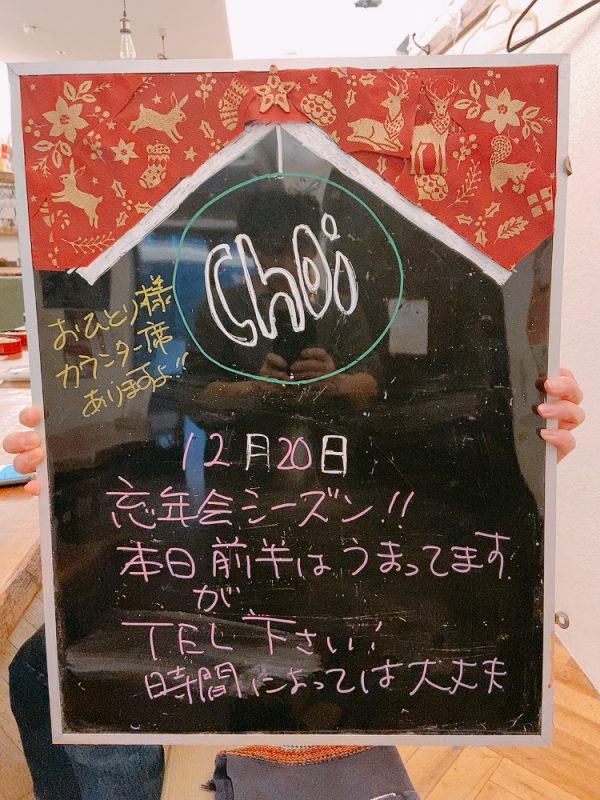 choi
おひとり様
カウンター席
ありますよ!!
12月20日
忘年会シーズン!!
本日前半はうまってます
が
TEL下さい!
時間によっては大丈夫